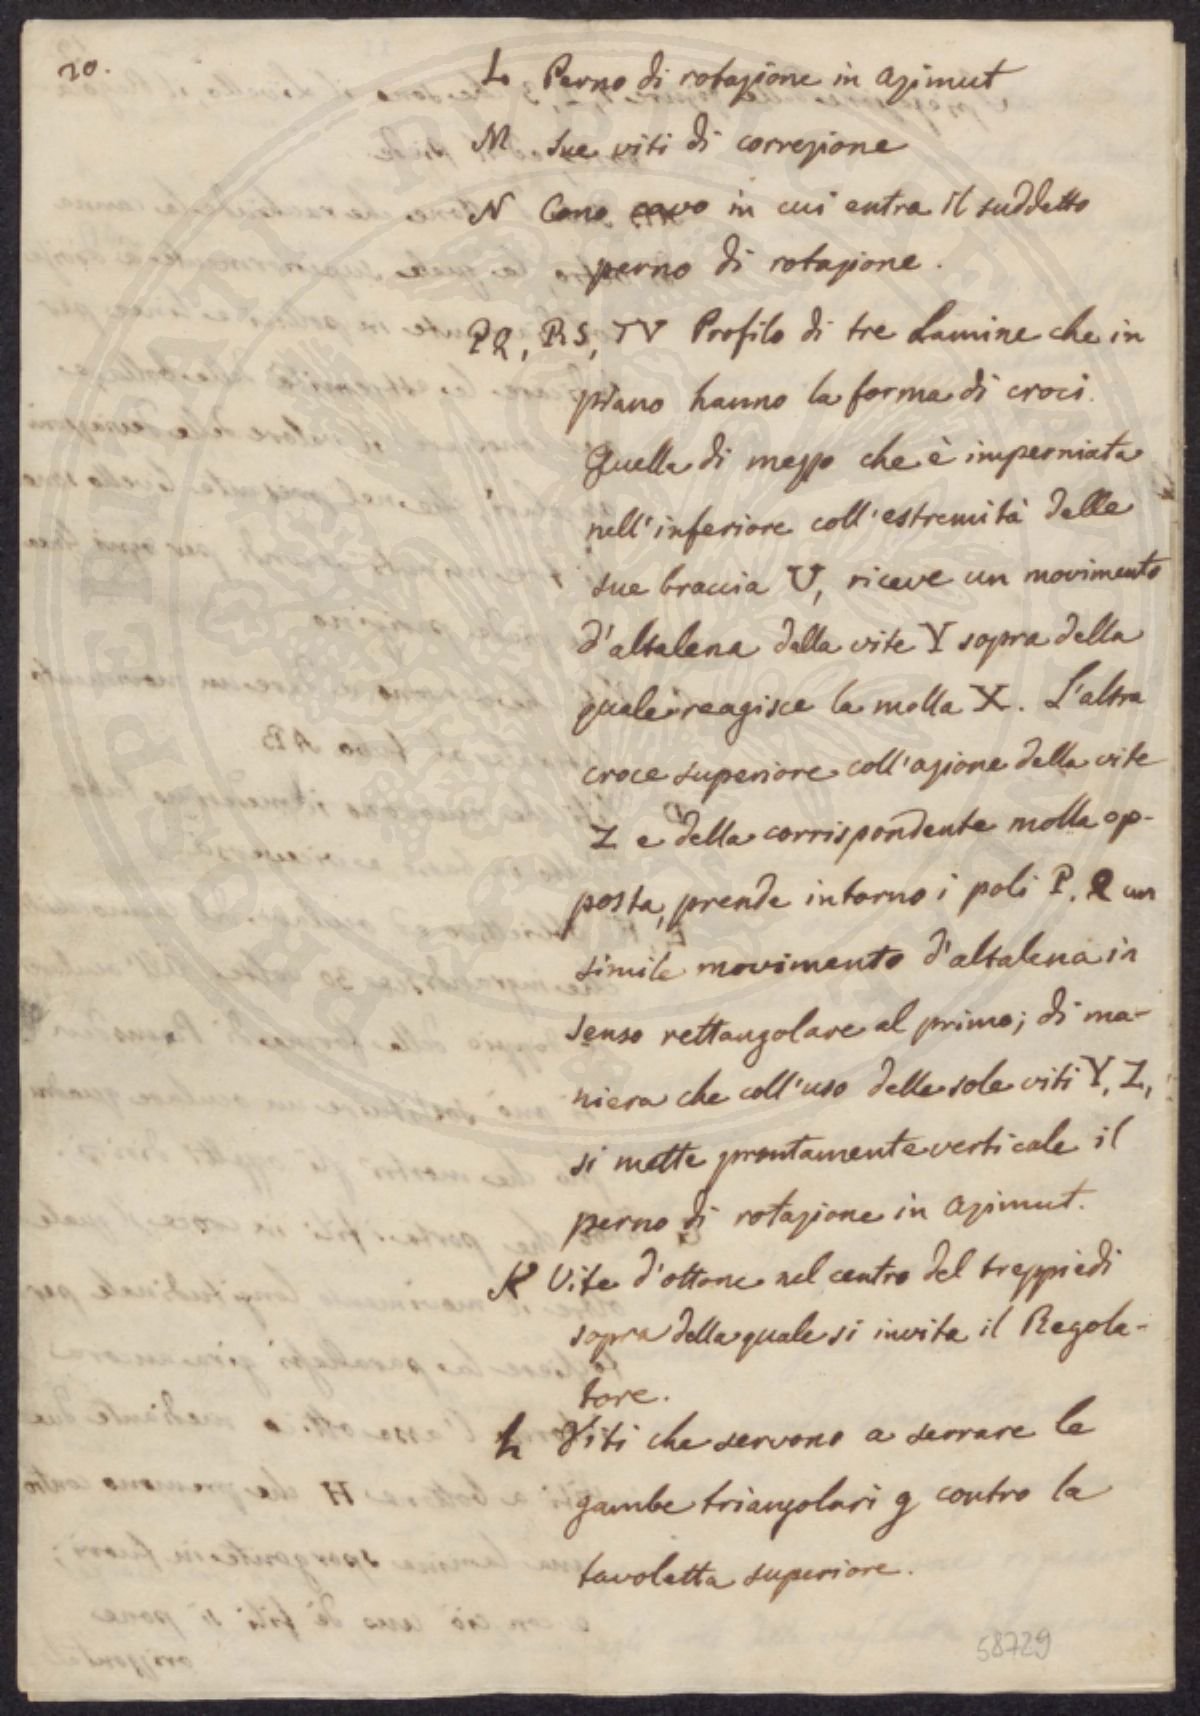 20.
L Perno di rotazione in azimut
M Sue viti di correzione
N Cono cavo in cui entra il suddetto
perno di rotazione.
PQ, RS, TV Profilo di tre Lamine che in
piano hanno la forma di croci.
Quella di mezzo che è imperniata
nell'inferiore coll'estremità delle
sue braccia U, riceve un movimento
d'altalena dalla vite Y sopra della
quale reagisce la molla X. L'altra
croce superiore coll'azione della vite
Z e della corrispondente molla op-
posta, prende intorno i poli P. Q un
simile movimento d'altalena in
senso rettangolare al primo; di ma-
niera che coll'uso delle sole viti Y, Z,
si mette prontamente verticale il
perno di rotazione in azimut.
K Vite d'ottone nel centro del treppiedi
sopra della quale si invita il Regola-
tore.
h Viti che servono a serrare le
gambe triangolari g contro la
tavoletta superiore.
58729